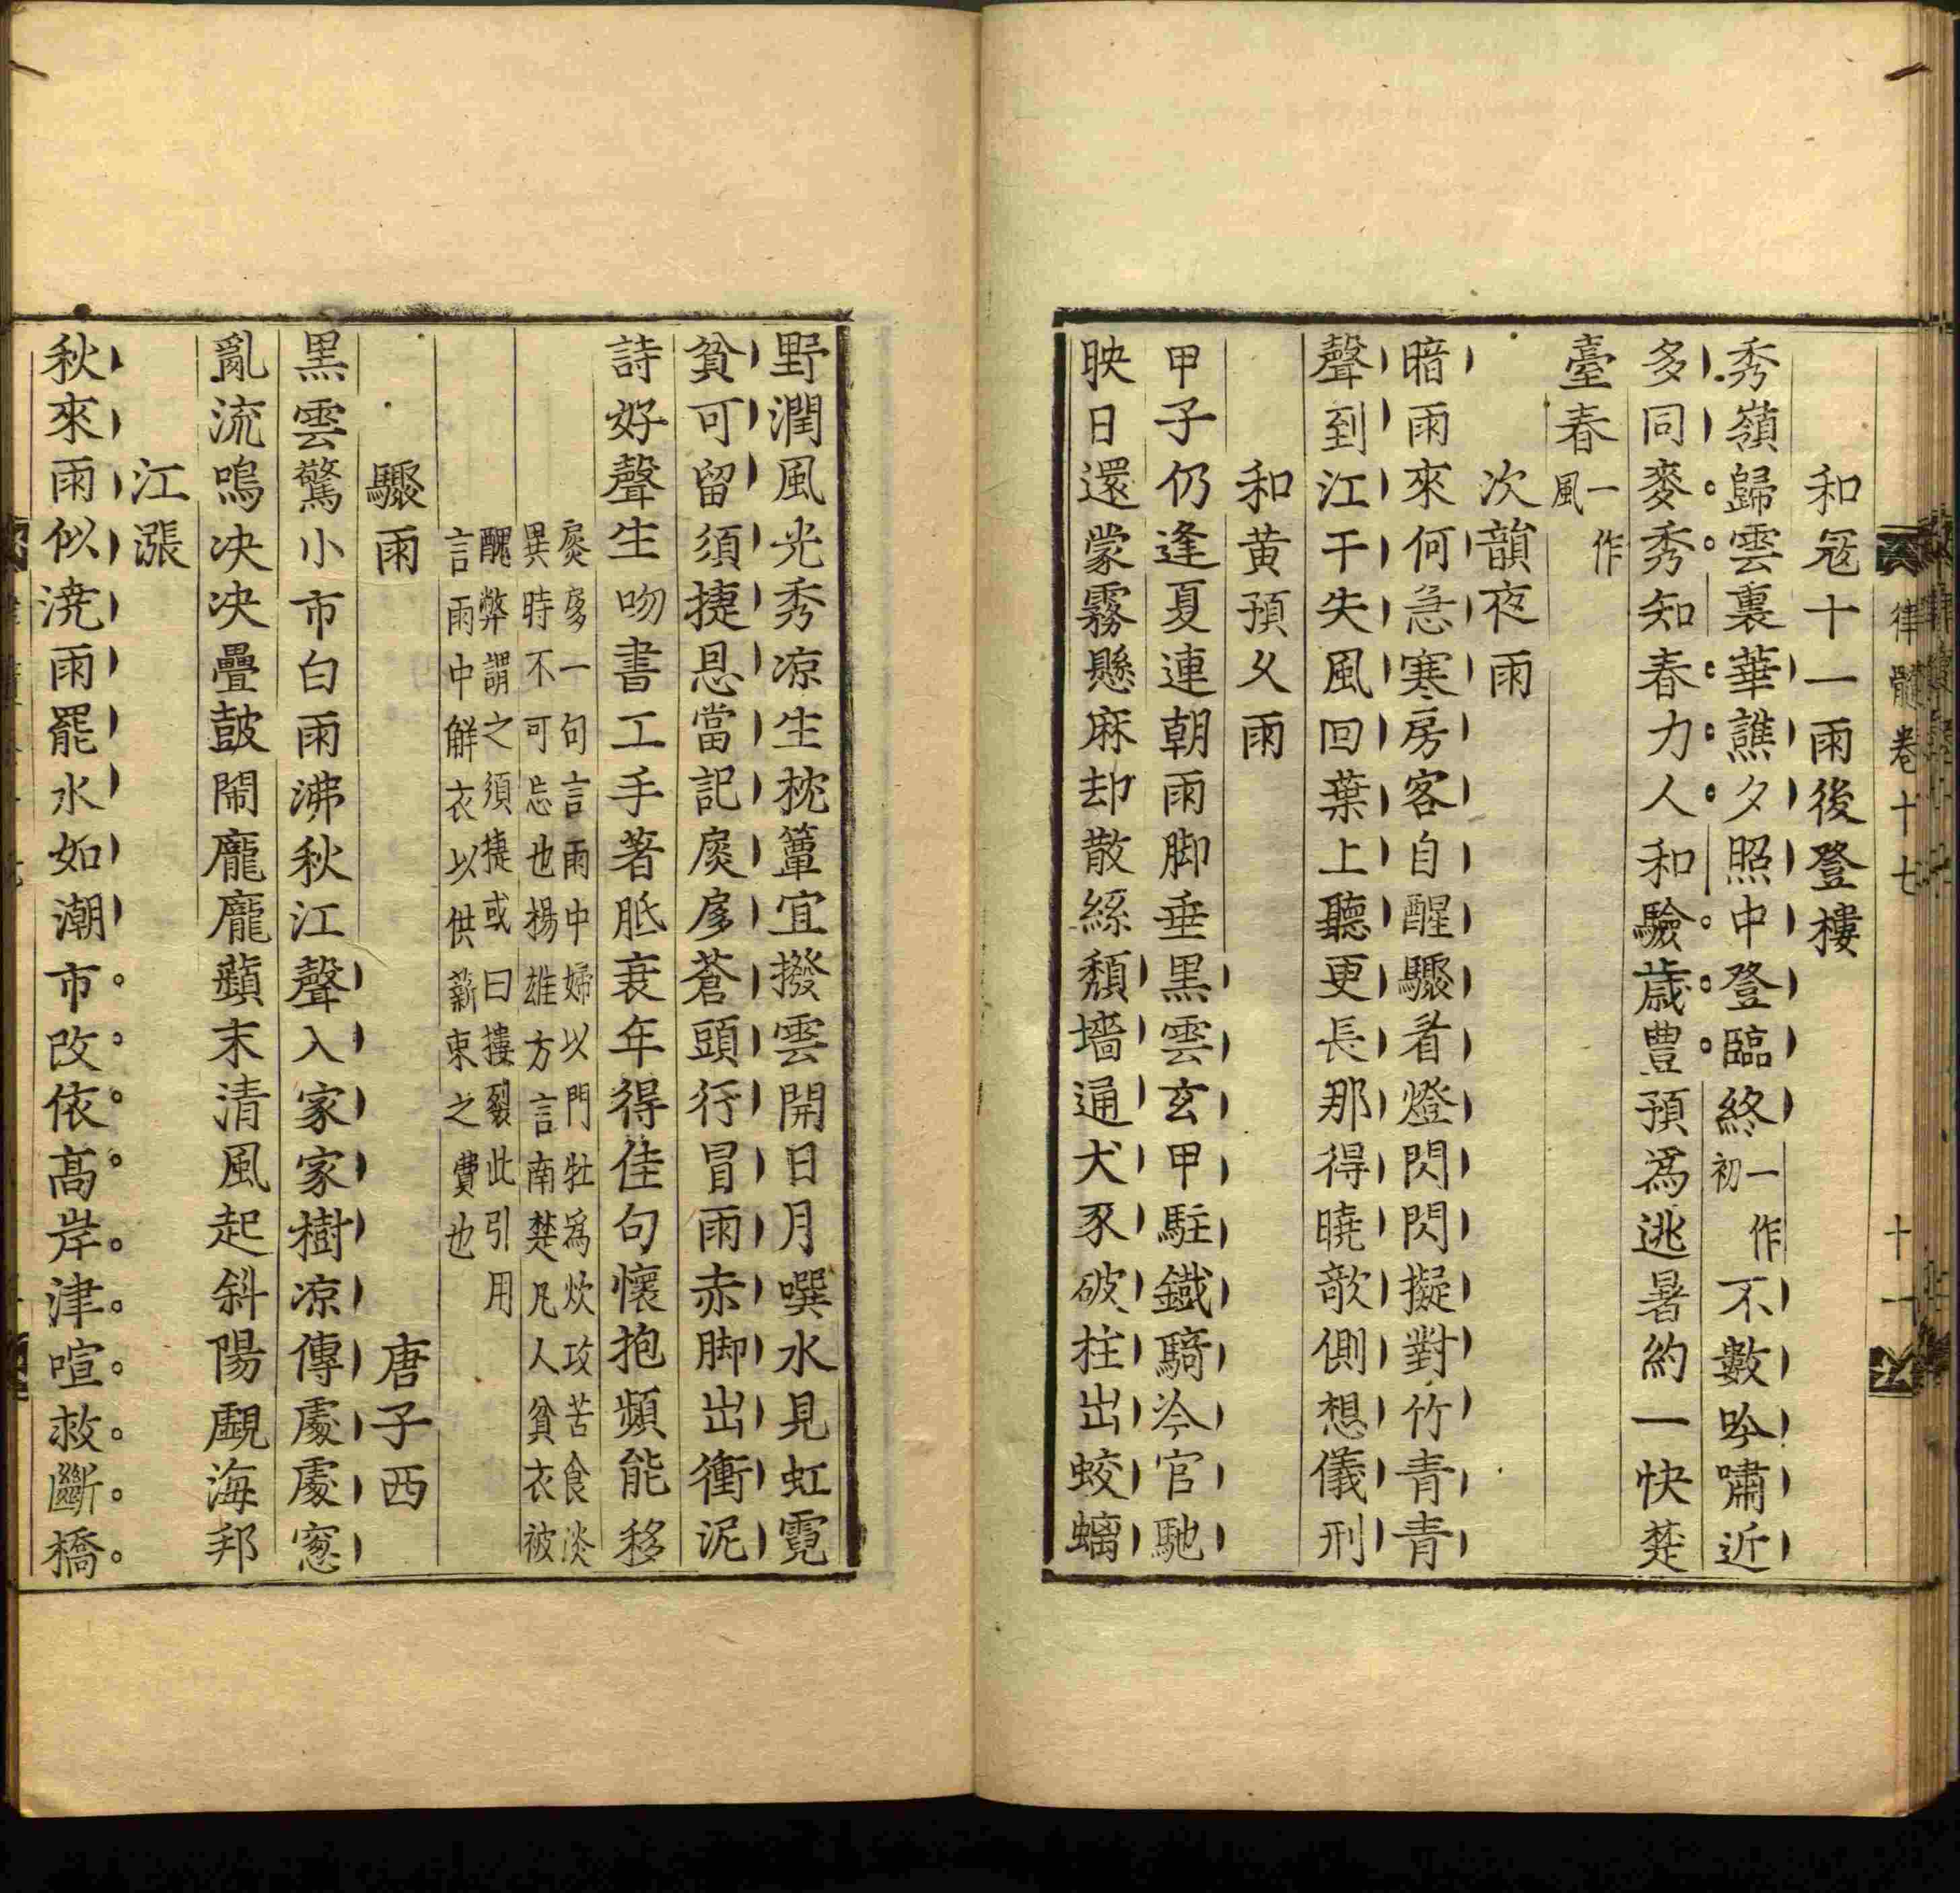 律髓卷十七 十一
和冦十一雨後登樓
秀嶺歸雲裏華譙夕照中登臨終一作初不數吟嘯近
多同麥秀知春力人和驗歳豊預爲逃暑約一快楚
臺春一作風
次韻夜雨
暗雨來何急寒房客自醒驟看燈閃閃擬對竹青青
聲到江干失風回葉上聽更長那得曉欹側想儀刑
和黄預乆雨
甲子仍逢夏連朝雨脚垂黒雲玄甲駐鐵騎冷官馳
映日還蒙霧懸麻却散絲頹墻通犬豕破柱出蛟螭
野潤風光秀凉生枕簟宜撥雲開日月噀水見虹霓
貧可留須捷恩當記扊扅蒼頭行冒雨赤脚出衝泥
詩好聲生吻書工手著胝衰年得佳句懷抱頻能移
扊扅一句言雨中婦以門牡爲炊攻苦食淡
異時不可忘也揚雄方言南楚凡人貧衣被
醜弊謂之須捷或曰摟裂此引用
言雨中解衣以供薪束之費也
驟雨 唐子西
黒雲驚小市白雨沸秋江聲入家家樹凉傳處處窻
亂流鳴决决疊鼓鬧龐龐蘋末清風起斜陽覷海邦
江漲
秋來雨似澆雨罷水如潮市改依髙岸津喧救斷橋